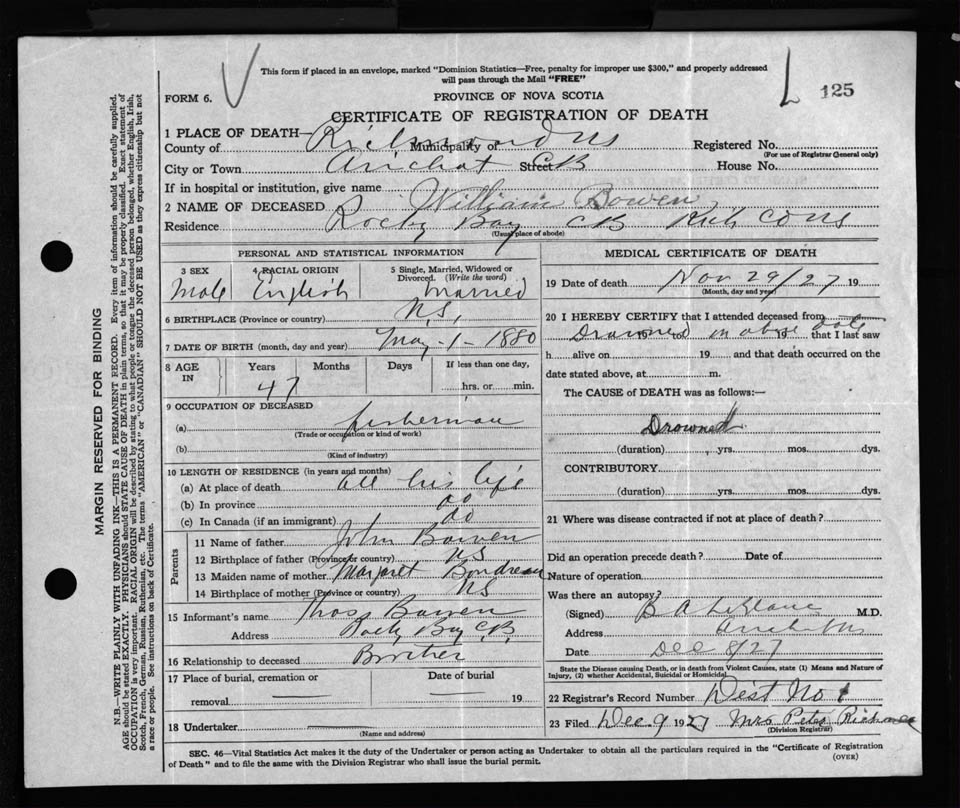 This form if placed in an envelope, marked "Dominion Statistics—Free, penalty for improper use $300," and properly addressed
will pass through the Mail "FREE"
FORM 6.
PROVINCE OF NOVA SCOTIA
125
CERTIFICATE OF REGISTRATION OF DEATH
1 PLACE OF DEATH—
County of Richmond NS Municipality of Registered No.
(For use of Registrar General only)
City or Town Arichat CB Street House No.
If in hospital or institution, give name
2 NAME OF DECEASED William Bowen
Residence Rocky Bay CB Rich Co NS
(Usual place of abode)
PERSONAL AND STATISTICAL INFORMATION
3 SEX 4 RACIAL ORIGIN 5 Single, Married, Widowed or Divorced. (Write the word)
Male English Married
6 BIRTHPLACE (Province or country) N.S.
7 DATE OF BIRTH (month, day and year) May-1-1880
8 AGE IN Years Months Days If less than one day,
47 hrs. or min.
9 OCCUPATION OF DECEASED
(a) fisherman
(Trade or occupation or kind of work)
(b)
(Kind of industry)
10 LENGTH OF RESIDENCE (in years and months)
(a) At place of death all his life
(b) In province do
(c) In Canada (if an immigrant) do
Parents
11 Name of father John Bowen
12 Birthplace of father (Province or country) NS
13 Maiden name of mother Margaret Boudreau
14 Birthplace of mother (Province or country) NS
15 Informant's name Thos Bowen
Address Rocky Bay C.B.
16 Relationship to deceased Brother
17 Place of burial, cremation or Date of burial
removal 19
18 Undertaker
(Name and address)
MEDICAL CERTIFICATE OF DEATH
19 Date of death Nov 29/27 19
(Month, day and year)
20 I HEREBY CERTIFY that I attended deceased from
Drowned on above date 19 to 19 that I last saw
h alive on 19 and that death occurred on the
date stated above, at m.
The CAUSE of DEATH was as follows:—
Drowned
(duration) yrs. mos. dys.
CONTRIBUTORY
(duration) yrs. mos. dys.
21 Where was disease contracted if not at place of death?
Did an operation precede death? Date of
Nature of operation
Was there an autopsy?
(Signed) B A LeBlanc M.D.
Address Arichat NS
Date Dec 8/27
State the Disease causing Death, or in death from Violent Causes, state (1) Means and Nature of
Injury, (2) whether Accidental, Suicidal or Homicidal.
22 Registrar's Record Number Dist No 1
23 Filed Dec 9 1927 Mrs Peter
(Division Registrar)
SEC. 46—Vital Statistics Act makes it the duty of the Undertaker or person acting as Undertaker to obtain all the particulars required in the "Certificate of Registration
of Death" and to file the same with the Division Registrar who shall issue the burial permit.
(OVER)
MARGIN RESERVED FOR BINDING
N.B.—WRITE PLAINLY WITH UNFADING INK—THIS IS A PERMANENT RECORD. Every item of information should be carefully supplied.
AGE should be stated EXACTLY. PHYSICIANS should STATE CAUSE OF DEATH in plain terms, so that it may be properly classified. Exact statement of
OCCUPATION is very important. RACIAL ORIGIN will be described by stating to what people or tongue the deceased person belonged, whether English, Irish,
Scotch, French, German, Russian, Ruthenian, etc. The terms "AMERICAN" or "CANADIAN" SHOULD NOT BE USED as they express citizenship but not
a race or people. See instructions on back of Certificate.